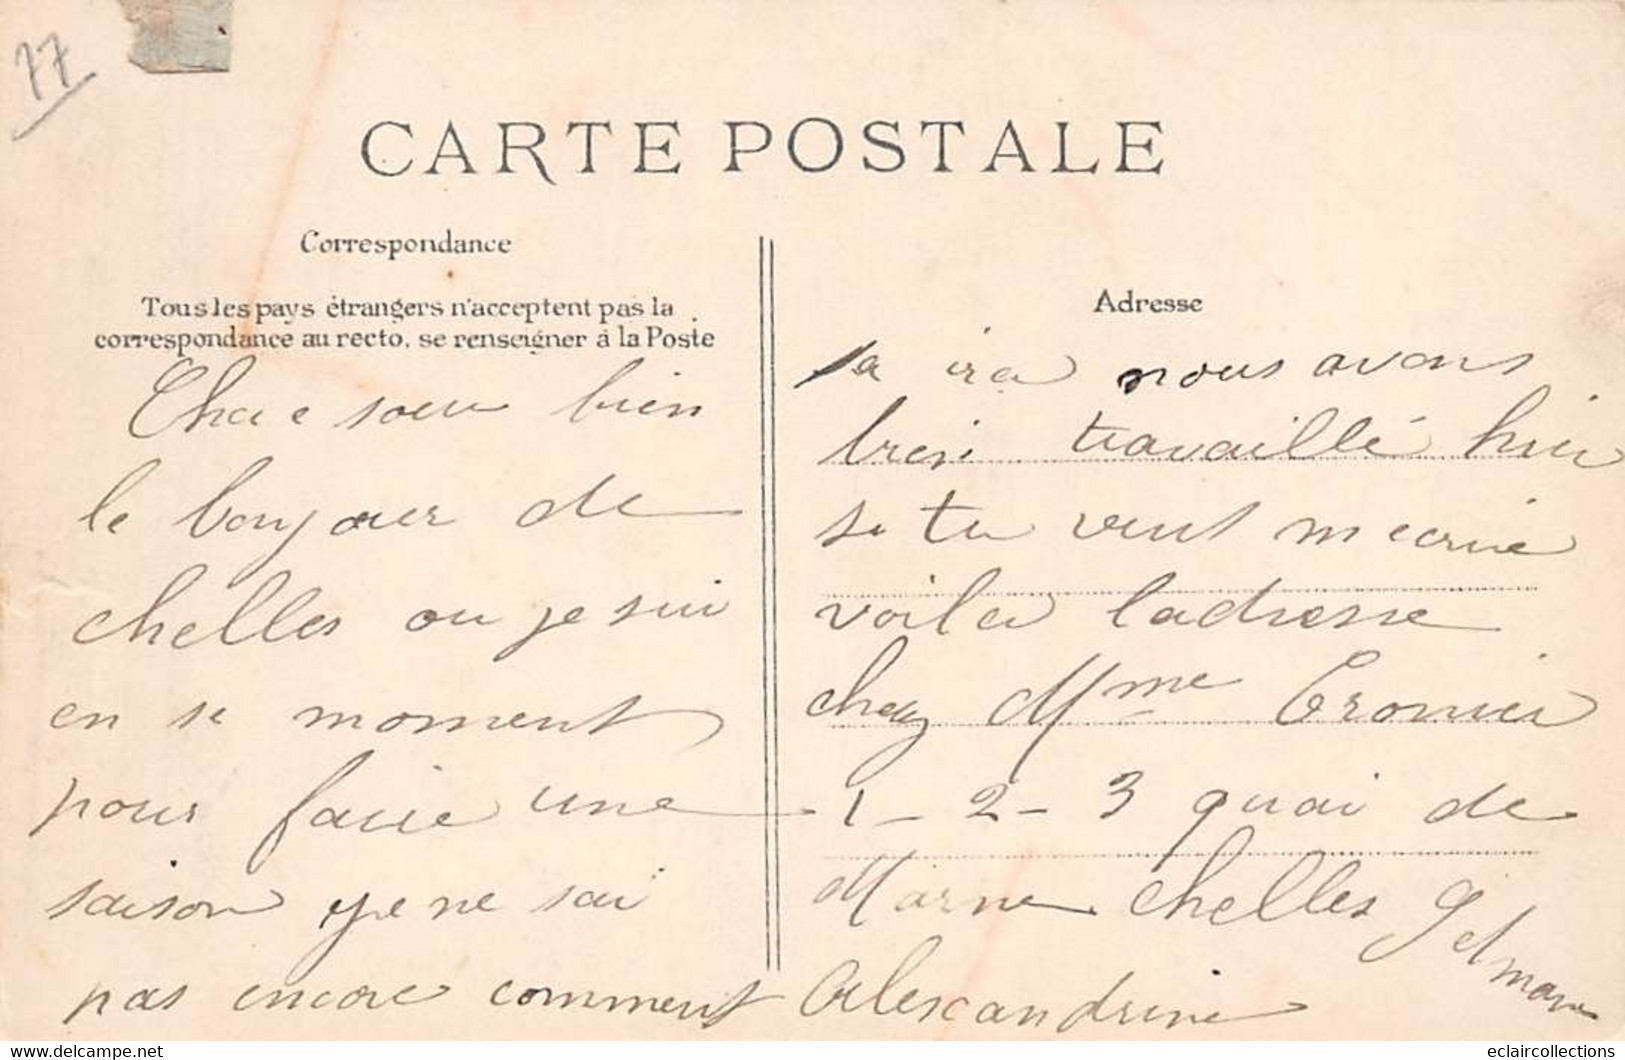 77
CARTE POSTALE
Correspondance
Tous les pays étrangers n'acceptent pas la
correspondance au recto, se renseigner à la Poste
Chere soeur bien
le bonjour de
chelles ou je sui
en se moment
pour faire une
saison je ne sai
pas encore comment
Adresse
sa ira nous avons
bien travaillé hier
si tu veut m ecrire
voila ladresse
chez Mme
1 - 2 - 3 quai de
Marne Chelles
Alexandrine
eclaircollections
delcampe.net